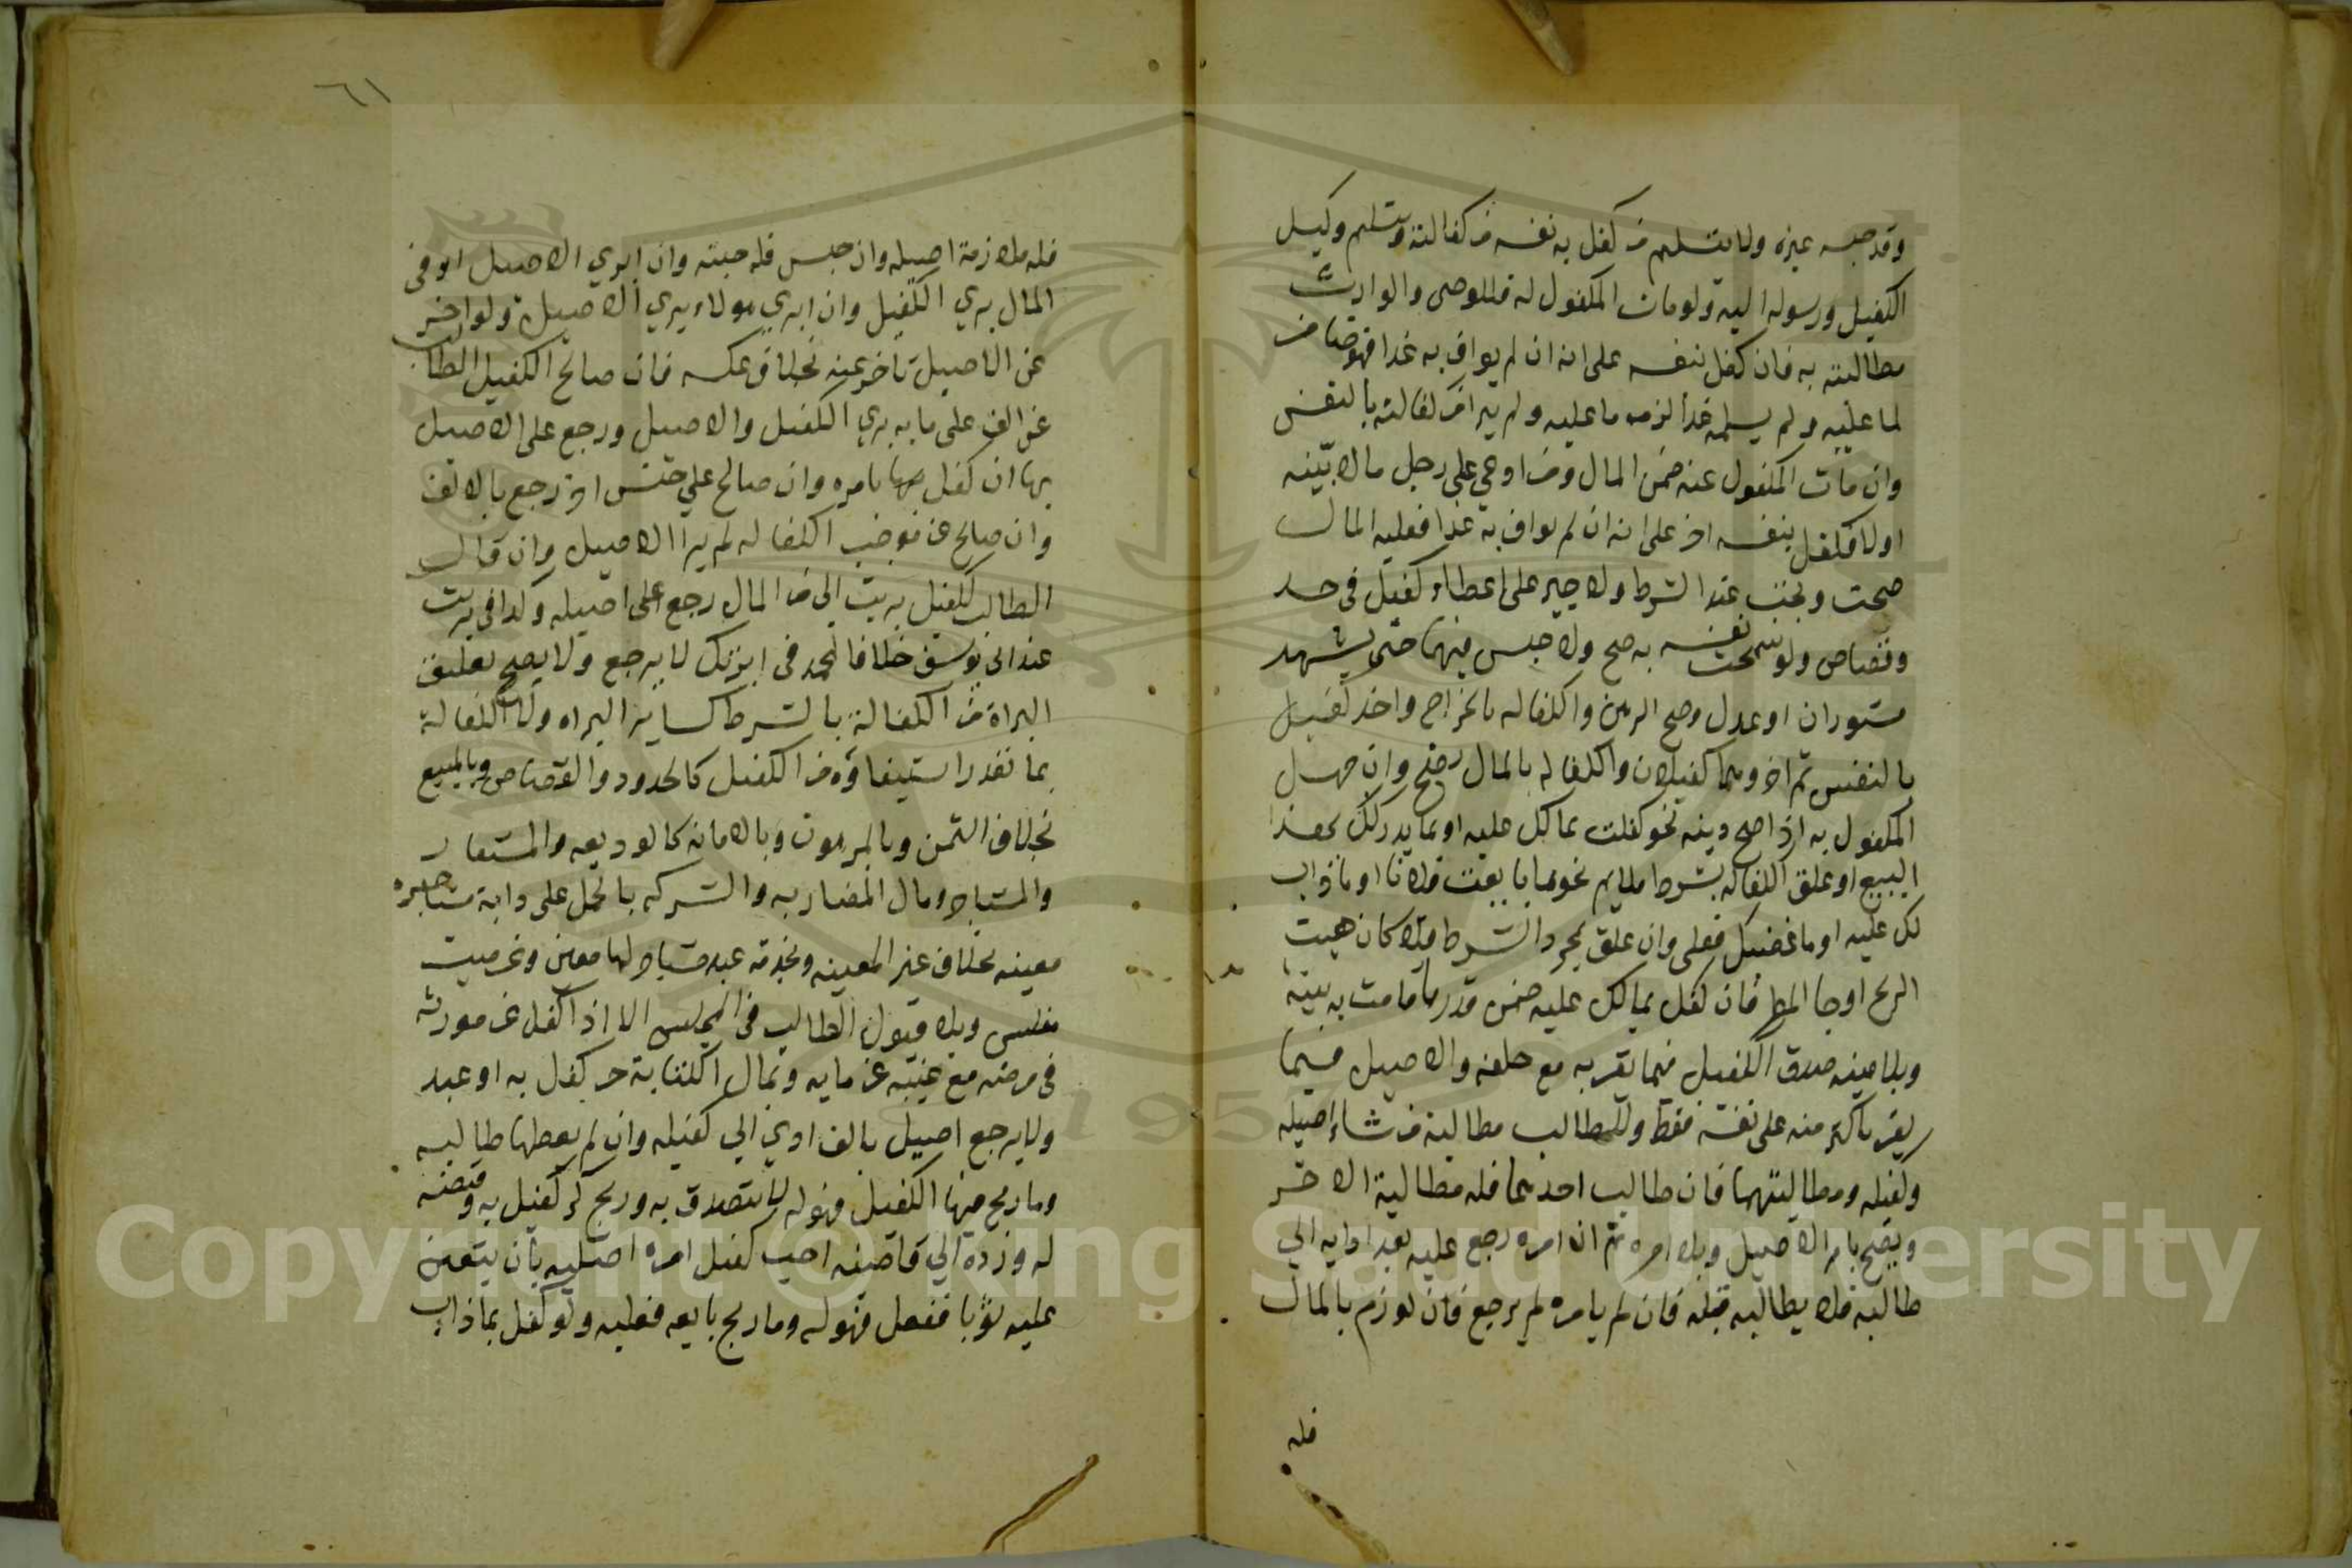 وقد حبسه غيره ولا بتسليم من كفل به نفسه من كفالته وبتسليم وكيل
الكفيل ورسوله اليه ولو مات المكفول له فللوصي والوارث
مطالبته به فان كفل بنفسه على انه ان لم يواف به غدا فهو ضامن
لما عليه ولم يسلمه غدا لزمه ما عليه ولم يبرا من كفالته بالنفس
وان مات المكفول عنه ضمن المال ومن ادعي على رجل مالا بينه
اولا فكفل بنفسه اخر على انه ان لم يواف به غدا فعليه المال
صحت ويجب عند الشرط ولا جبر على اعطاء كفيل في حد
وقصاص ولو سمحت نفسه به صح ولا حبس فيهما حتى يشهد
مستوران او عدل وصح الرهن والكفاله بالخراج واخذ كفيل
بالنفس ثم اخر وهما كفيلان والكفاله بالمال تصح وان جهل
المكفول به اذا صح دينه نحو كفلت بما لك عليه او بما يدركك بهذا
البيع او علق الكفاله بشرط ملايم نحو ما بايعت فلانا او ما ذاب
لك عليه او ما غصبك فعلى وان علق بمجرد الشرط فلا كان هبت
الريح او جا المطر فان كفل بما لك عليه ضمن قدر ما قامت به بينة
وبلا بينه صدق الكفيل فيما يقر به مع حلفه والاصيل فيما
يقر باكثر منه على نفسه فقط وللطالب مطالبة من شاء اصيله
وكفيله ومطالبتهما فان طالب احدهما فله مطالبة الاخر
ويصح بامر الاصيل وبلا امره ثم ان امره رجع عليه بعد ادايه الي
طالبه فلا يطالبه قبله فان لم يامره لم يرجع فان لوزم بالمال
فله
٦١
فله ملازمة اصيله وان حبس فله حبسه وان ابري الاصيل او في
المال بري الكفيل وان ابري هو لا يبري الاصيل ولو اخر
عن الاصيل تاخر عنه بخلاف عكسه فان صالح الكفيل الطالب
عن الف على مايه بري الكفيل والاصيل ورجع على الاصيل
بها ان كفل بامره وان صالح علي جنس اخر رجع بالالف
وان صالح عن موجب الكفاله لم يبرا الاصيل وان قال
الطالب للكفيل بريت الى من المال رجع على اصيله وكذا في بريت
عند ابي يوسف خلافا لمحمد في ابرتك لا يرجع ولا يصح تعليق
البراة من الكفالة بالشرط كساير البراه ولا الكفالة
بما تعذر استيفاؤه من الكفيل كالحدود والقصاص وبالمبيع
بخلاف الثمن وبالمرهون وبالامانه كالوديعه والمستعار
والمستاجر ومال المضاربه والشركه بالحمل على دابة مستاجره
معينه بخلاف غير المعينه وبخدمة عبد مستاجر لها معين وعن ميت
مفلس وبلا قبول الطالب في المجلس الا اذا كفل عن مورثه
في مرضه مع غيبه غرمايه وبمال الكتابة حر كفل به او عبد
ولا يرجع اصيل بالف ادي الي كفيله وان لم يعطها طالبه
وما ربح فيها الكفيل فهو له لا يتصدق به وربح كر كفيل به وقبضه
له ورده الي قاضيه احب كفيل امره اصيله بان يتعين
عليه ثوبا ففعل فهو له وما ربح بايعه فعليه ولو كفل بما ذاب
Copyright © King Saud University
1957